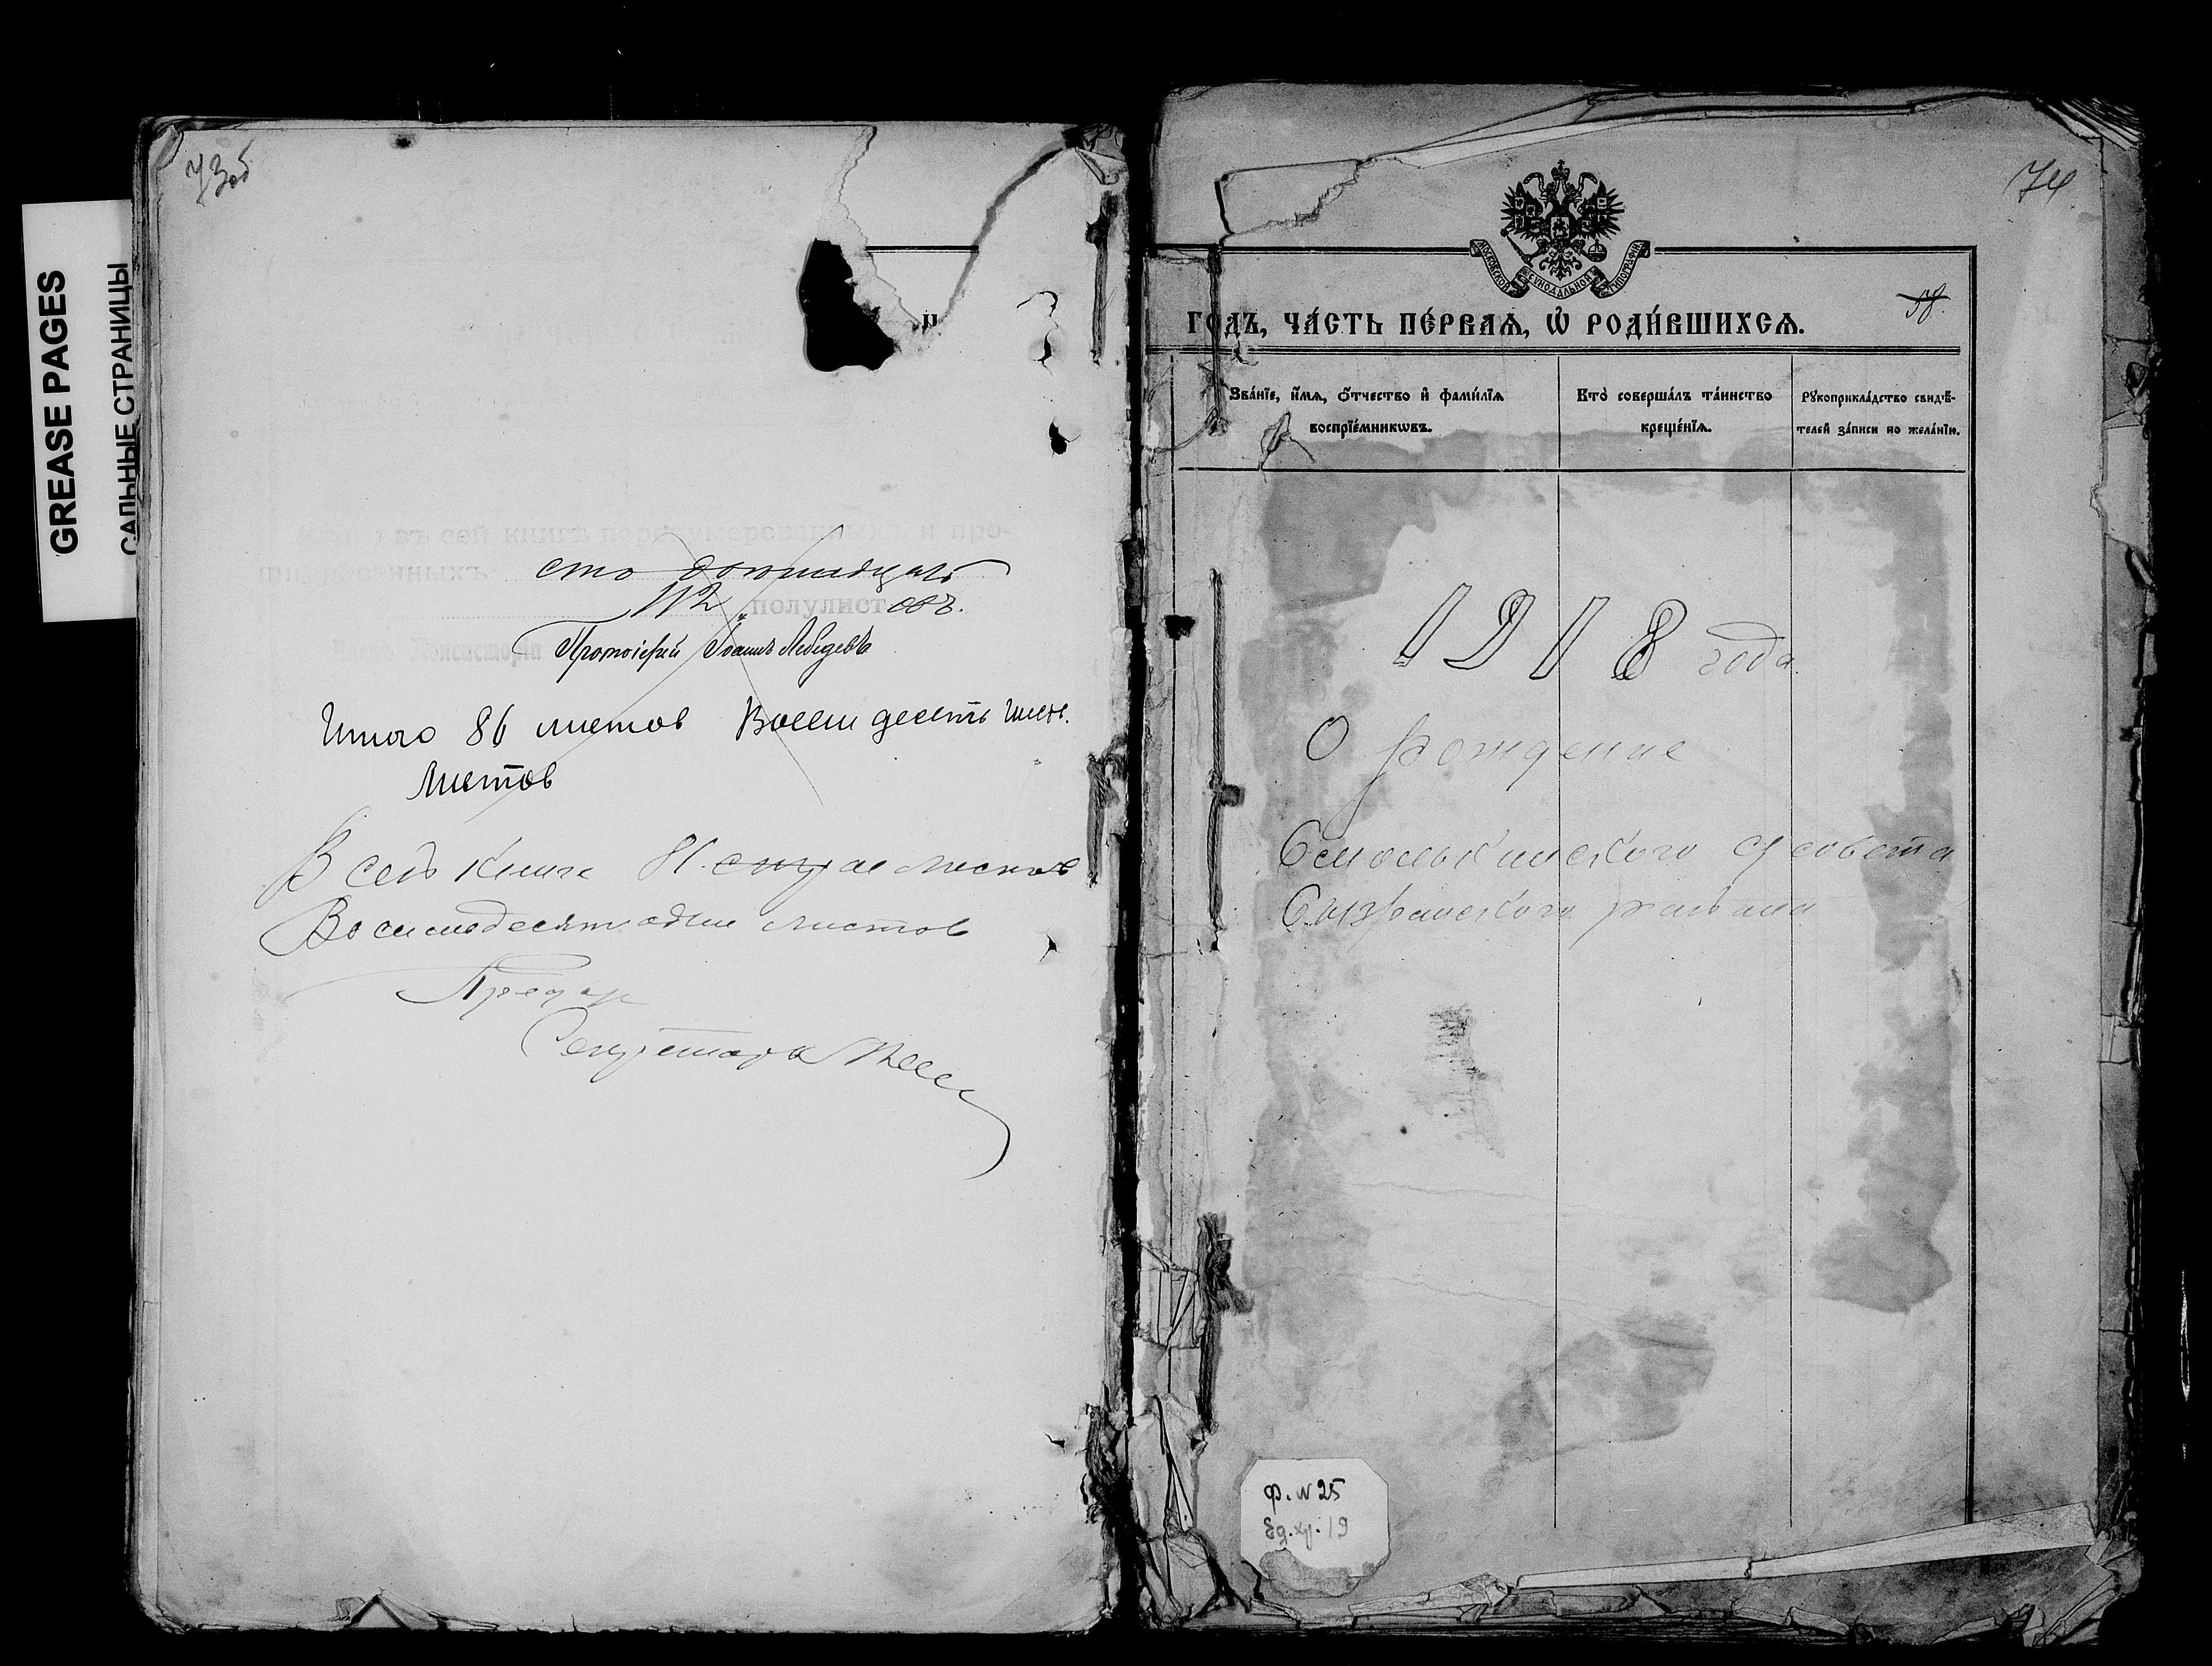 GREASE PAGES
САЛЬНЫЕ СТРАНИЦЫ
73об
въ сей книгѣ перенумерованныхъ и про-
шнурованныхъ сто двенадцать
112 полулистовъ.
Протоіерей Іоаннъ Лебедевъ
Итого 86 листов Восемдесять шесть
Листов
В сей книге 81 листов
Восемьдесят один листов
Предс
Секретарь
74
МОСКОВСКОЙ СѴНОДАЛЬНОЙ ТИПОГРАФІИ
ГО́ДЪ, ЧА́СТЬ ПЕ́РВАѦ, Ѡ҆ РОДИ́ВШИХСѦ.
Зва́нїе, и҆́мѧ, ѻ҆́тчество и҆ фами́лїѧ
воспрїе́мникѡвъ.
Кто̀ соверша́лъ та́инство
креще́нїѧ.
Рꙋкоприкла́дство свидѣ́-
телей за́писи по жела́нїю.
1918 года.
О рождение
Смолькинского с/совета
Сызранского района
Ф. N 25
Ед. хр. 19